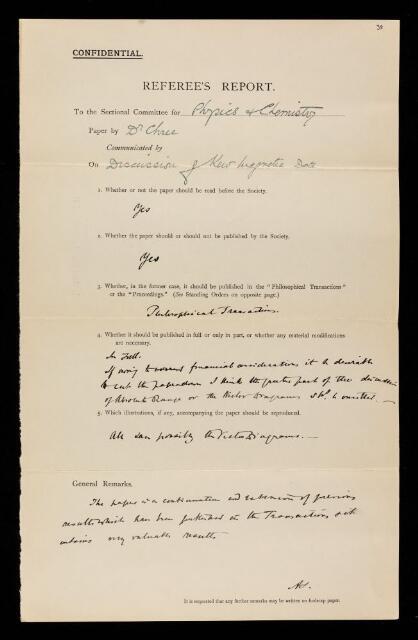 CONFIDENTIAL.
REFEREE'S REPORT.
To the Sectional Committee for Physics & Chemistry
Paper by Dr Chree
Communicated by
On Discussion of Kew Magnetic Data
1. Whether or not the paper should be read before the Society.
Yes
2. Whether the paper should or should not be published by the Society.
Yes
3. Whether, in the former case, it should be published in the "Philosophical Transactions"
or the "Proceedings." (See Standing Orders on opposite page.)
Philosophical Transactions.
4. Whether it should be published in full or only in part, or whether any material modifications
are necessary.
In full.
If owing to financial considerations it is desirable
to cut the paper down I think the greater part of the discussion
of Absolute Range or the Vector Diagrams shd. be omitted. —
5. Which illustrations, if any, accompanying the paper should be reproduced.
All save possibly the Vector Diagrams. —
General Remarks.
The paper is a continuation and extension of previous
results which have been published in the Transactions &
contains very valuable results
It is requested that any further remarks may be written on foolscap paper.